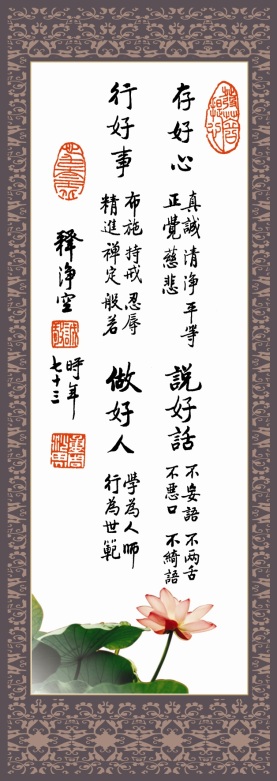 存好心
真誠 清浄 平等
正覺 慈悲
說好話
不妄語 不兩舌
不惡口 不綺語
行好事
布施 持戒 忍辱
精進 禪定 般若
做好人
學為人師
行為世範
釋淨空
時年
七十三